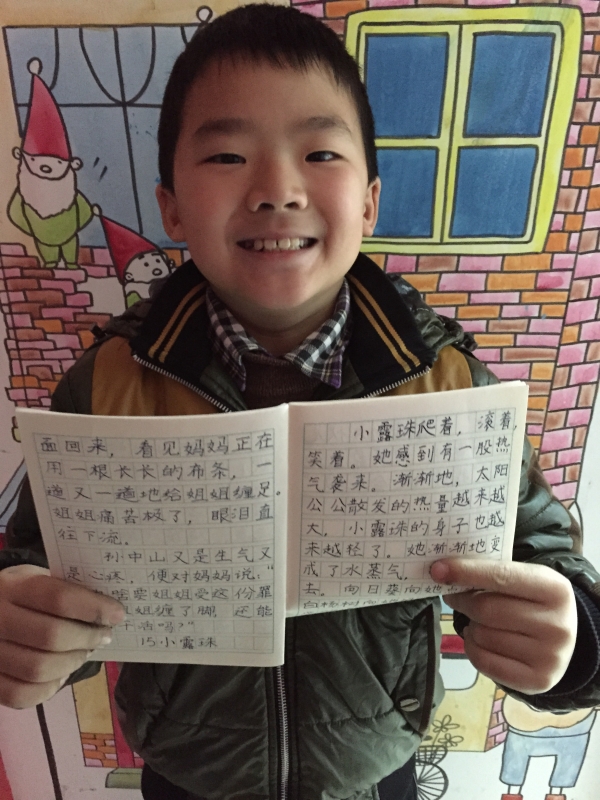 面回来，看见妈妈正在
用一根长长的布条，一
道又一道地给姐姐缠足。
姐姐痛苦极了，眼泪直
往下流。
孙中山又是生气又
是心疼，便对妈妈说：“
啥要姐姐受这份罪
姐缠了脚，还能
干活吗？”
15小露珠
小露珠爬着，滚着，
笑着。她感到有一股热
气袭来。渐渐地，太阳
公公散发的热量越来越
大，小露珠的身子也越
来越轻了。她渐渐地变
成了水蒸气。
去。向日葵向她